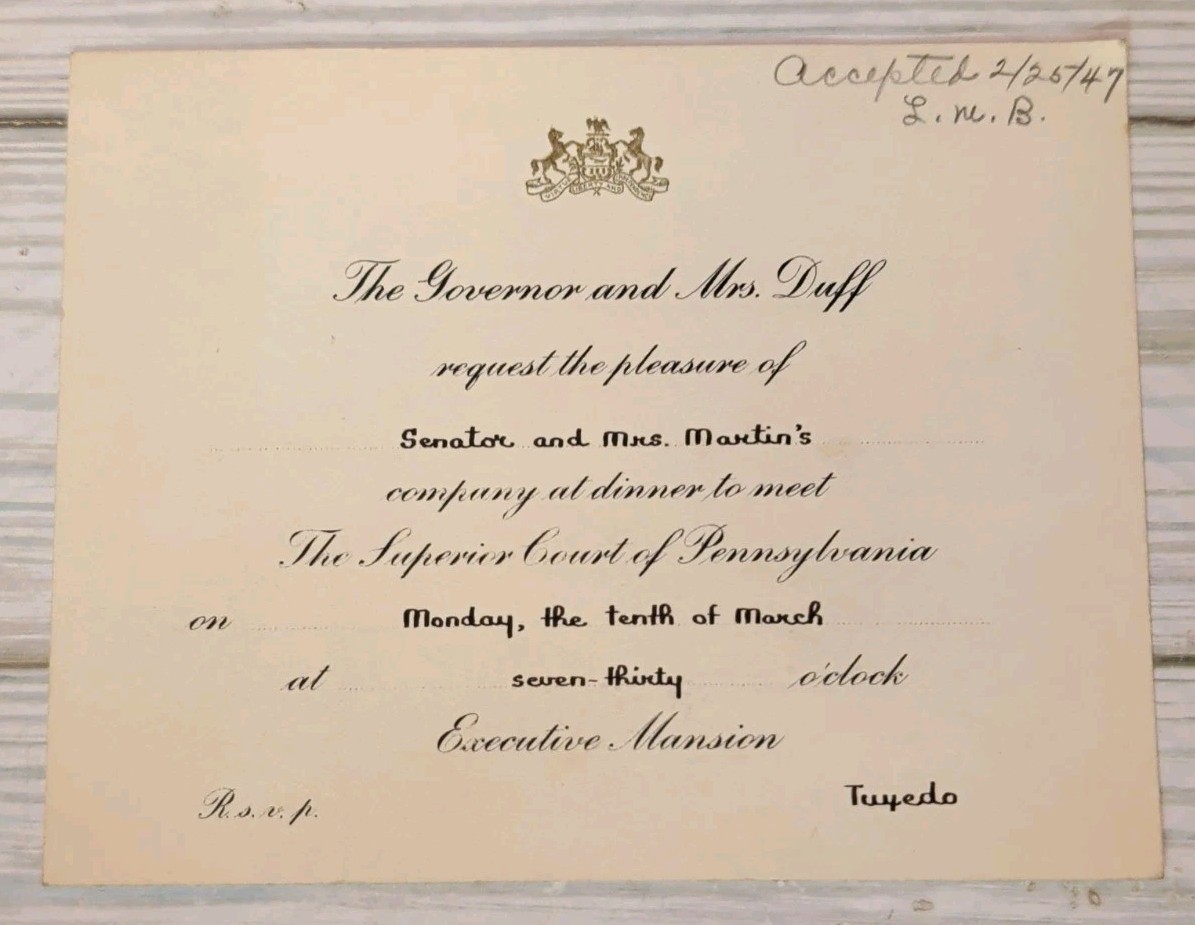 Accepted 2/25/47
L. M. B.
VIRTUE LIBERTY AND INDEPENDENCE
The Governor and Mrs. Duff
request the pleasure of
Senator and Mrs. Martin's
company at dinner to meet
The Superior Court of Pennsylvania
on Monday, the tenth of March
at seven-thirty o'clock
Executive Mansion
R. s. v. p. Tuxedo